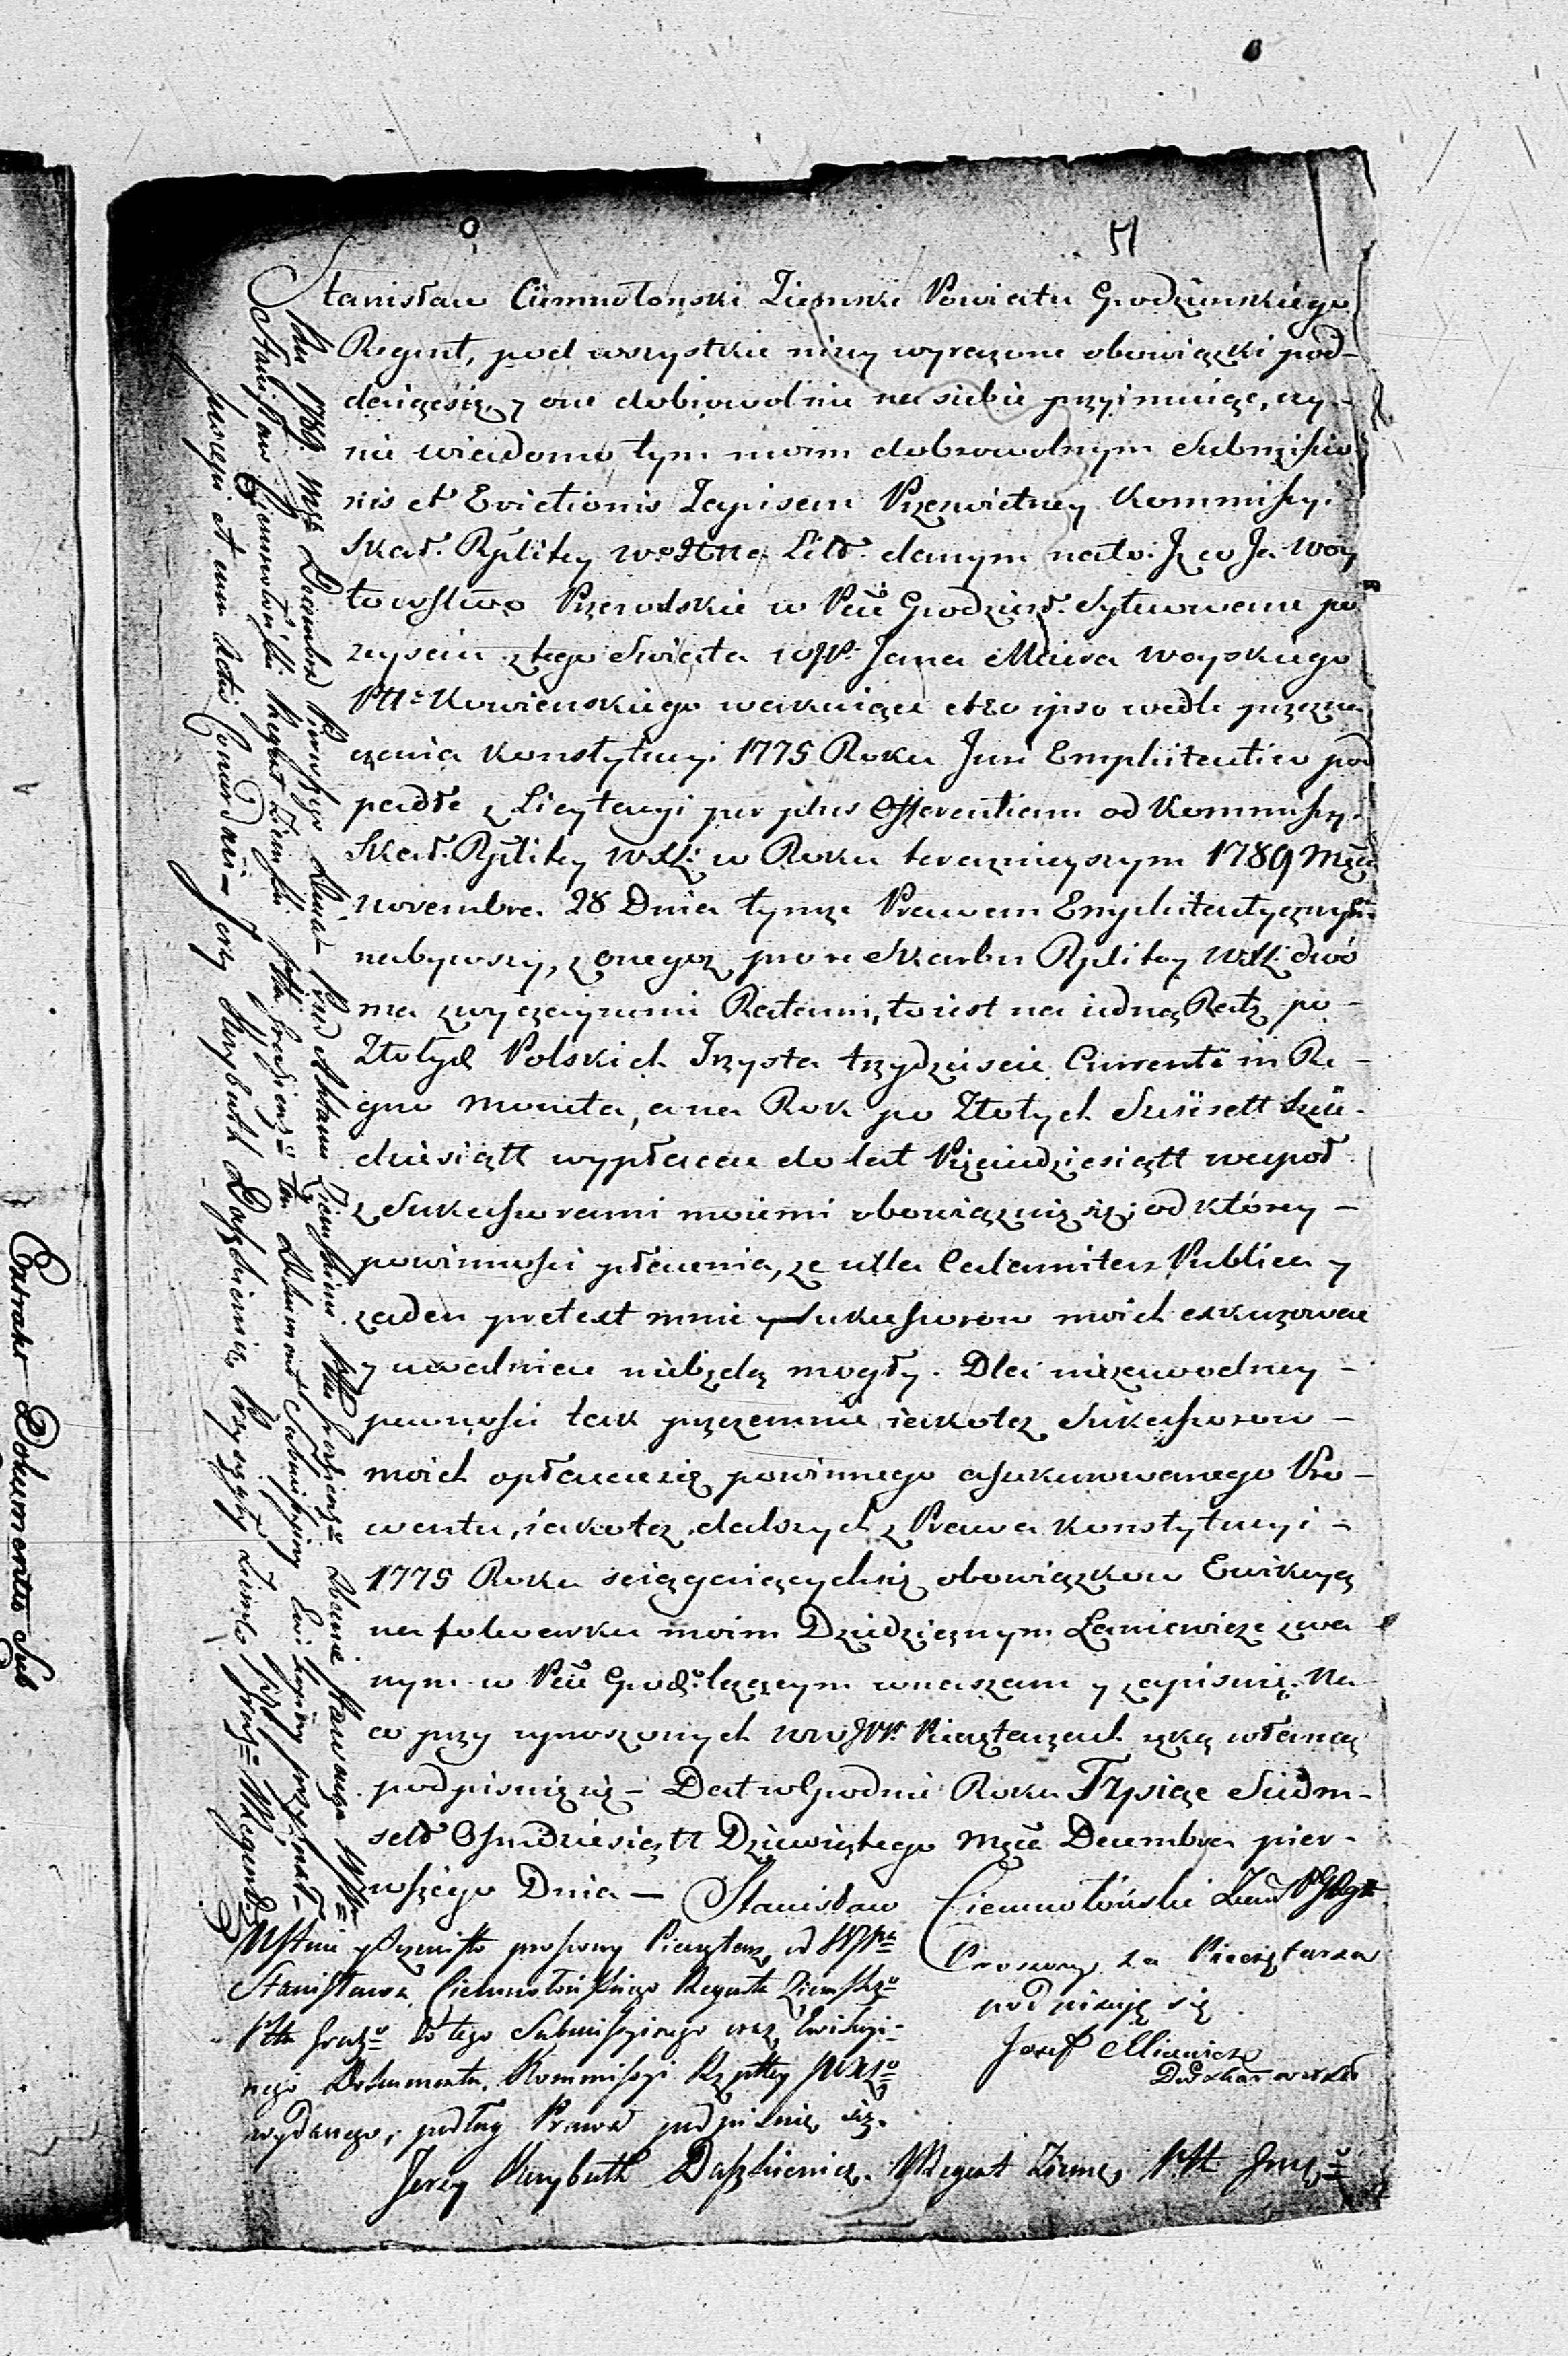 Stanisław Ciemnołonski Ziemski Powiatu Grodzienskiego
Regent, pod wszystkie niżey wyrażone obowiązki pod-
daiącsię, y one dobrowolnie na siebie przyimuiąc, czy-
nie wiadomo tym moim dobrowolnym Submissio-
nis et Evictionis Zapisem Prześwietney Kommissyi
Skar. Rplitey W° Xtta Litt. danym na to: Iż co Ja Woy
towstwo Przewalskie w Pcie Grodzień. Sytuowane po
zeysciu z tego Swiata WJP. Jana Mayera Woyskiego
Pttu Kowienskiego wakuiące et eo ipso wedle przezna
czenia Konstytucyi 1775 Roku Juri Emphiteutico pod
padłe z Licytacyi per plus Offerentiam od Kommissyi
Skar. Rplitey W.X.L. w Roku teraznieyszym 1789 Mca
Novembra 28 Dnia tymże Prawem Emphiteutycznym
nabywszy, z onegoż pro re Skarbu Rplitey W.X.L. dwó
ma zwyczaynemi Ratami, to iest na iedną Ratę po-
Złotych Polskich Trzysta trzydziescie Currenti in Re-
gno Moneta, a na Rok po Złotych Szeset Sześ-
dziesiątt wypłacac do lat Pięcudziesiątt wespoł
z Sukcessorami moiemi obowiązuię się; od którey-
powinnosci płacenia, że ulla Calamitas Publica y
żaden pretext mnie y Sukcessorow moich exkuzowac
y uwalniac niebędą mogły. Dla niezawodney-
pewnosci tak przezemnie iakoteż Sukcessorow-
moich opłacacsię powinnego assekurowanego Pro-
wentu, iakoteż dalszych z Prawa Konstytucyi-
1775 Roku sciągaiącychsię obowiązkow Ewikcyą
na folwarku moim Dziedzicznym Laniewicze zwa
nym w Pcie Grodz. leżącym wnaszam y zapisuię. Na
co przy uproszonych WW JPP. Pieczętarzach ręką własną
podpisuię się- Dat w Grodnie Roku Tysiąc Siedm-
sett Osmdziesiątt Dziewiątego Mca Decembra pier-
wszego Dnia- Stanisław Ciemnołoński Ziem. P. G. Rgtt
Ustnie y Oczewisto proszony Pieczętarz od WJPna
Stanisława Ciemnołońskiego Regenta Ziemskgo
Pttu Grodz° do tego Submissyinego oraz Ewikcyi-
nego Dokumentu, Kommissyi Rzpltey
wydanego, podług Prawa podpisuię się.
Jerzy Korybuth Daszkiewicz. WRegent Ziems. Pttu Grodz°
Proszony za Pieczętarza
podpisuię się
Jozef Micewicz
Roku 1789. Msca Decembra Pierwszego Dnia Przed Aktami Ziemskiemi Pttu Grodzieng° Stawaiąc WJPan
Stanisław Ciemnołoński Regent Ziemski Pttu Grodzieng° ten Dokument Submissyiny Ewikcyiny przyznał-
Suscepi et cum Actis Concordavi- Jerzy Korybuth Daszkiewicz Przysięgły Ziemski Ptt Grodz° WRegent
Extrakt Dokumentu Sub